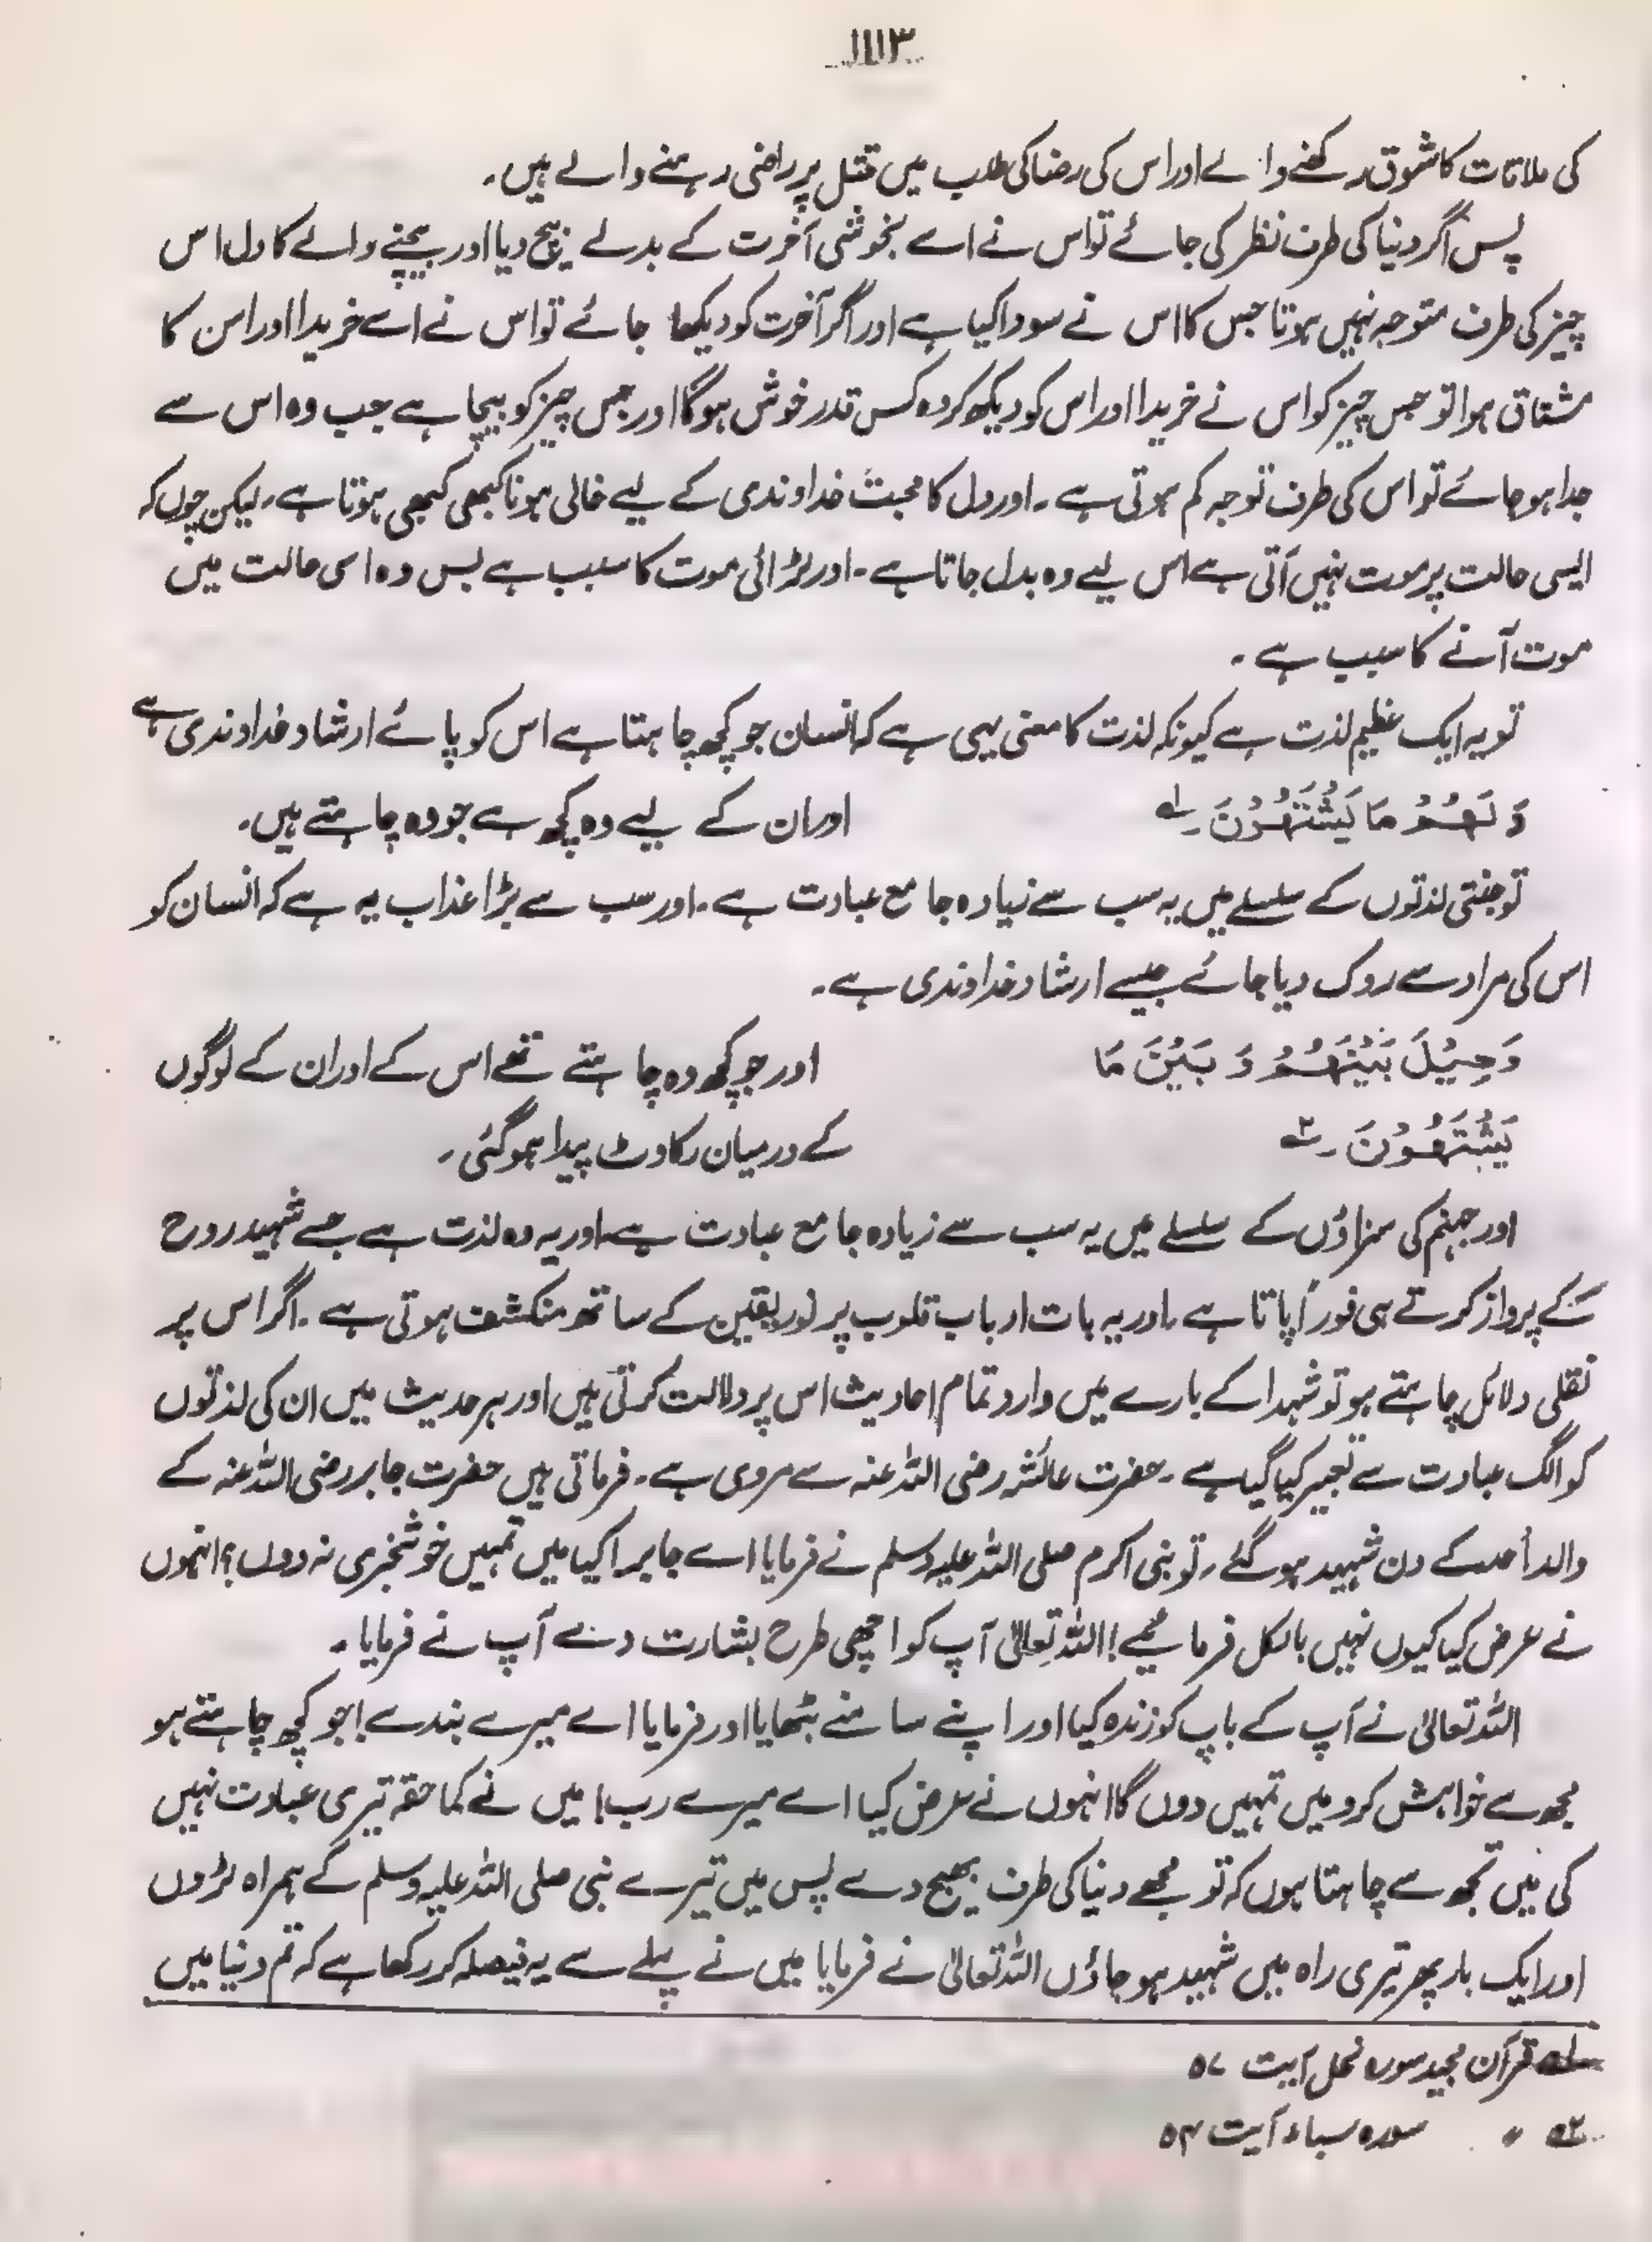 ۱۱۱۳
کی ملاقات کا شوق رکھنے والے اور اس کی رضا کی طلب میں قتل پر راضی رہنے والے ہیں۔
پس اگر دنیا کی طرف نظر کی جائے تو اس نے اسے بخوشی آخرت کے بدلے بیچ دیا اور بیچنے والے کا دل اس
چیز کی طرف متوجہ نہیں ہوتا جس کا اس نے سودا کیا ہے اور اگر آخرت کو دیکھا جائے تو اس نے اسے خریدا اور اس کا
مشتاق ہوا تو جس چیز کو اس نے خریدا اور اس کو دیکھ کر وہ کس قدر خوش ہوگا اور جس چیز کو بیچا ہے جب وہ اس سے
جدا ہو جائے تو اس کی طرف توجہ کم ہوتی ہے۔ اور دل کا محبت خداوندی کے لیے خالی ہونا کبھی کبھی ہوتا ہے۔ لیکن چوں کہ
ایسی حالت پر موت نہیں آتی ہے اس لیے وہ بدل جاتا ہے۔ اور لڑائی موت کا سبب ہے بس وہ اسی حالت میں
موت آنے کا سبب ہے۔
تو یہ ایک عظیم لذت ہے کیونکہ لذت کا معنی یہی ہے کہ انسان جو کچھ چاہتا ہے اس کو پائے ارشاد خداوندی ہے
وَلَهُمْ مَا يَشْتَهُوْنَ ۔ لے اور ان کے لیے وہ کچھ ہے جو وہ چاہتے ہیں۔
تو جنتی لذتوں کے سلسلے میں یہ سب سے زیادہ جامع عبادت ہے۔ اور سب سے بڑا عذاب یہ ہے کہ انسان کو
اس کی مراد سے روک دیا جائے جیسے ارشاد خداوندی ہے۔
وَحِيْلَ بَيْنَهُمْ وَ بَيْنَ مَا اور جو کچھ وہ چاہتے تھے اس کے اور ان کے لوگوں
يَشْتَهُوْنَ ۔ ۲ کے درمیان رکاوٹ پیدا ہو گئی۔
اور جہنم کی سزاؤں کے سلسلے میں یہ سب سے زیادہ جامع عبادت ہے اور یہ وہ لذت ہے جسے شہید روح
کے پرواز کرتے ہی فوراً پاتا ہے۔ اور یہ بات ارباب قلوب پر نور یقین کے ساتھ منکشف ہوتی ہے۔ اگر اس پر
نقلی دلائل چاہتے ہو تو شہدا کے بارے میں وارد تمام احادیث اس پر دلالت کرتی ہیں اور ہر حدیث میں ان کی لذتوں
کو الگ عبادت سے تعبیر کیا گیا ہے۔ حضرت عائشہ رضی اللہ عنہ سے مروی ہے۔ فرماتی ہیں حضرت جابر رضی اللہ عنہ کے
والد اُحد کے دن شہید ہو گئے، تو نبی اکرم صلی اللہ علیہ وسلم نے فرمایا اے جابر! کیا میں تمہیں خوشخبری نہ دوں؟ انہوں
نے عرض کیا کیوں نہیں بالکل فرمائیے! اللہ تعالیٰ آپ کو اچھی طرح بشارت دے آپ نے فرمایا۔
اللہ تعالیٰ نے آپ کے باپ کو زندہ کیا اور اپنے سامنے بٹھایا اور فرمایا اے میرے بندے! جو کچھ چاہتے ہو
مجھ سے خواہش کرو میں تمہیں دوں گا انہوں نے عرض کیا اے میرے رب! میں نے کما حقہ تیری عبادت نہیں
کی میں تجھ سے چاہتا ہوں کہ تو مجھے دنیا کی طرف بھیج دے پس میں تیرے نبی صلی اللہ علیہ وسلم کے ہمراہ لڑوں
اور ایک بار پھر تیری راہ میں شہید ہو جاؤں اللہ تعالیٰ نے فرمایا میں نے پہلے سے یہ فیصلہ کر رکھا ہے کہ تم دنیا میں
لہ قرآن مجید سورہ نحل آیت ۵۷
۲ ؍؍ سورہ سباء آیت ۵۴